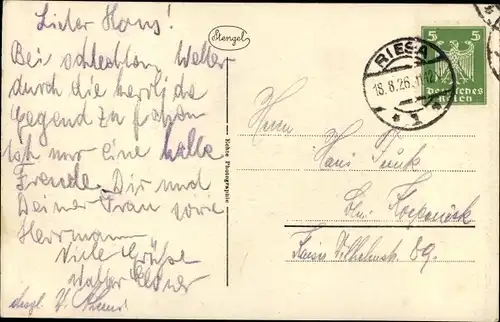 Lieber Hans!
Bei schlechtem Wetter
durch die herrliche
Gegend zu fahren
ist nur eine halbe
Freude. Dir und
Deiner Frau sowie
Herrmann
viele Grüße
Walter
Stengel
Echte Photographie
5 5
Deutsches
Reich
RIESA
18.8.26. 11-12
* 1 *
Herrn
Hans
Bln. Köpenick
Kaiser Wilhelmstr. 89.